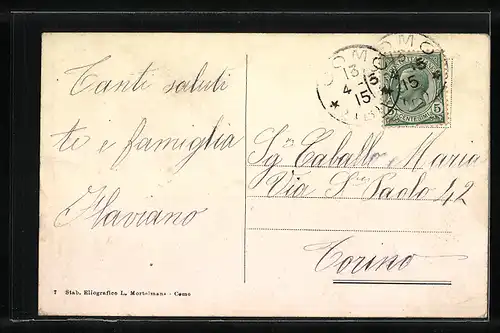 Tanti saluti
te e famiglia
Flaviano
COMO
13
4
15
CENTESIMI 5
Sga Caballo Maria
Via S. Paolo 42
Torino
7 Stab. Eliografico L. Mortelmans - Como